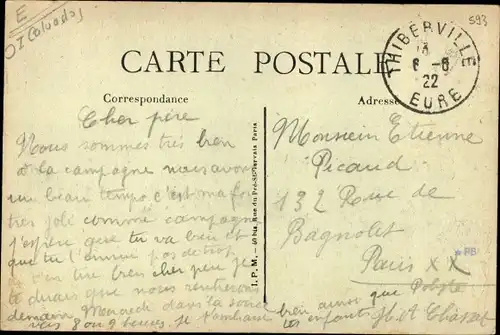 E
(Calvados)
593
CARTE POSTALE
THIBERVILLE
6 -6
22
EURE
Correspondance
Adresse
Cher père
Nous sommes très bien
à la campagne nous avons
un beau tempo c'est ma foi
tres joli comme campagne
j'espère que tu va bien et
que tu l'ennui pas de trot
tres bien cher père je
te dirais que nous rentrerons
demain Mercredi dans la soiré
vers 8 ou 9 heures je t'embrasse bien ainsi que
les enfants
I. P. M. — 40 bis, Rue du Pré-St-Gervais Paris
Monsieur Etienne
Picaud
132 Rue de
Bagnolet
Paris XX
PB